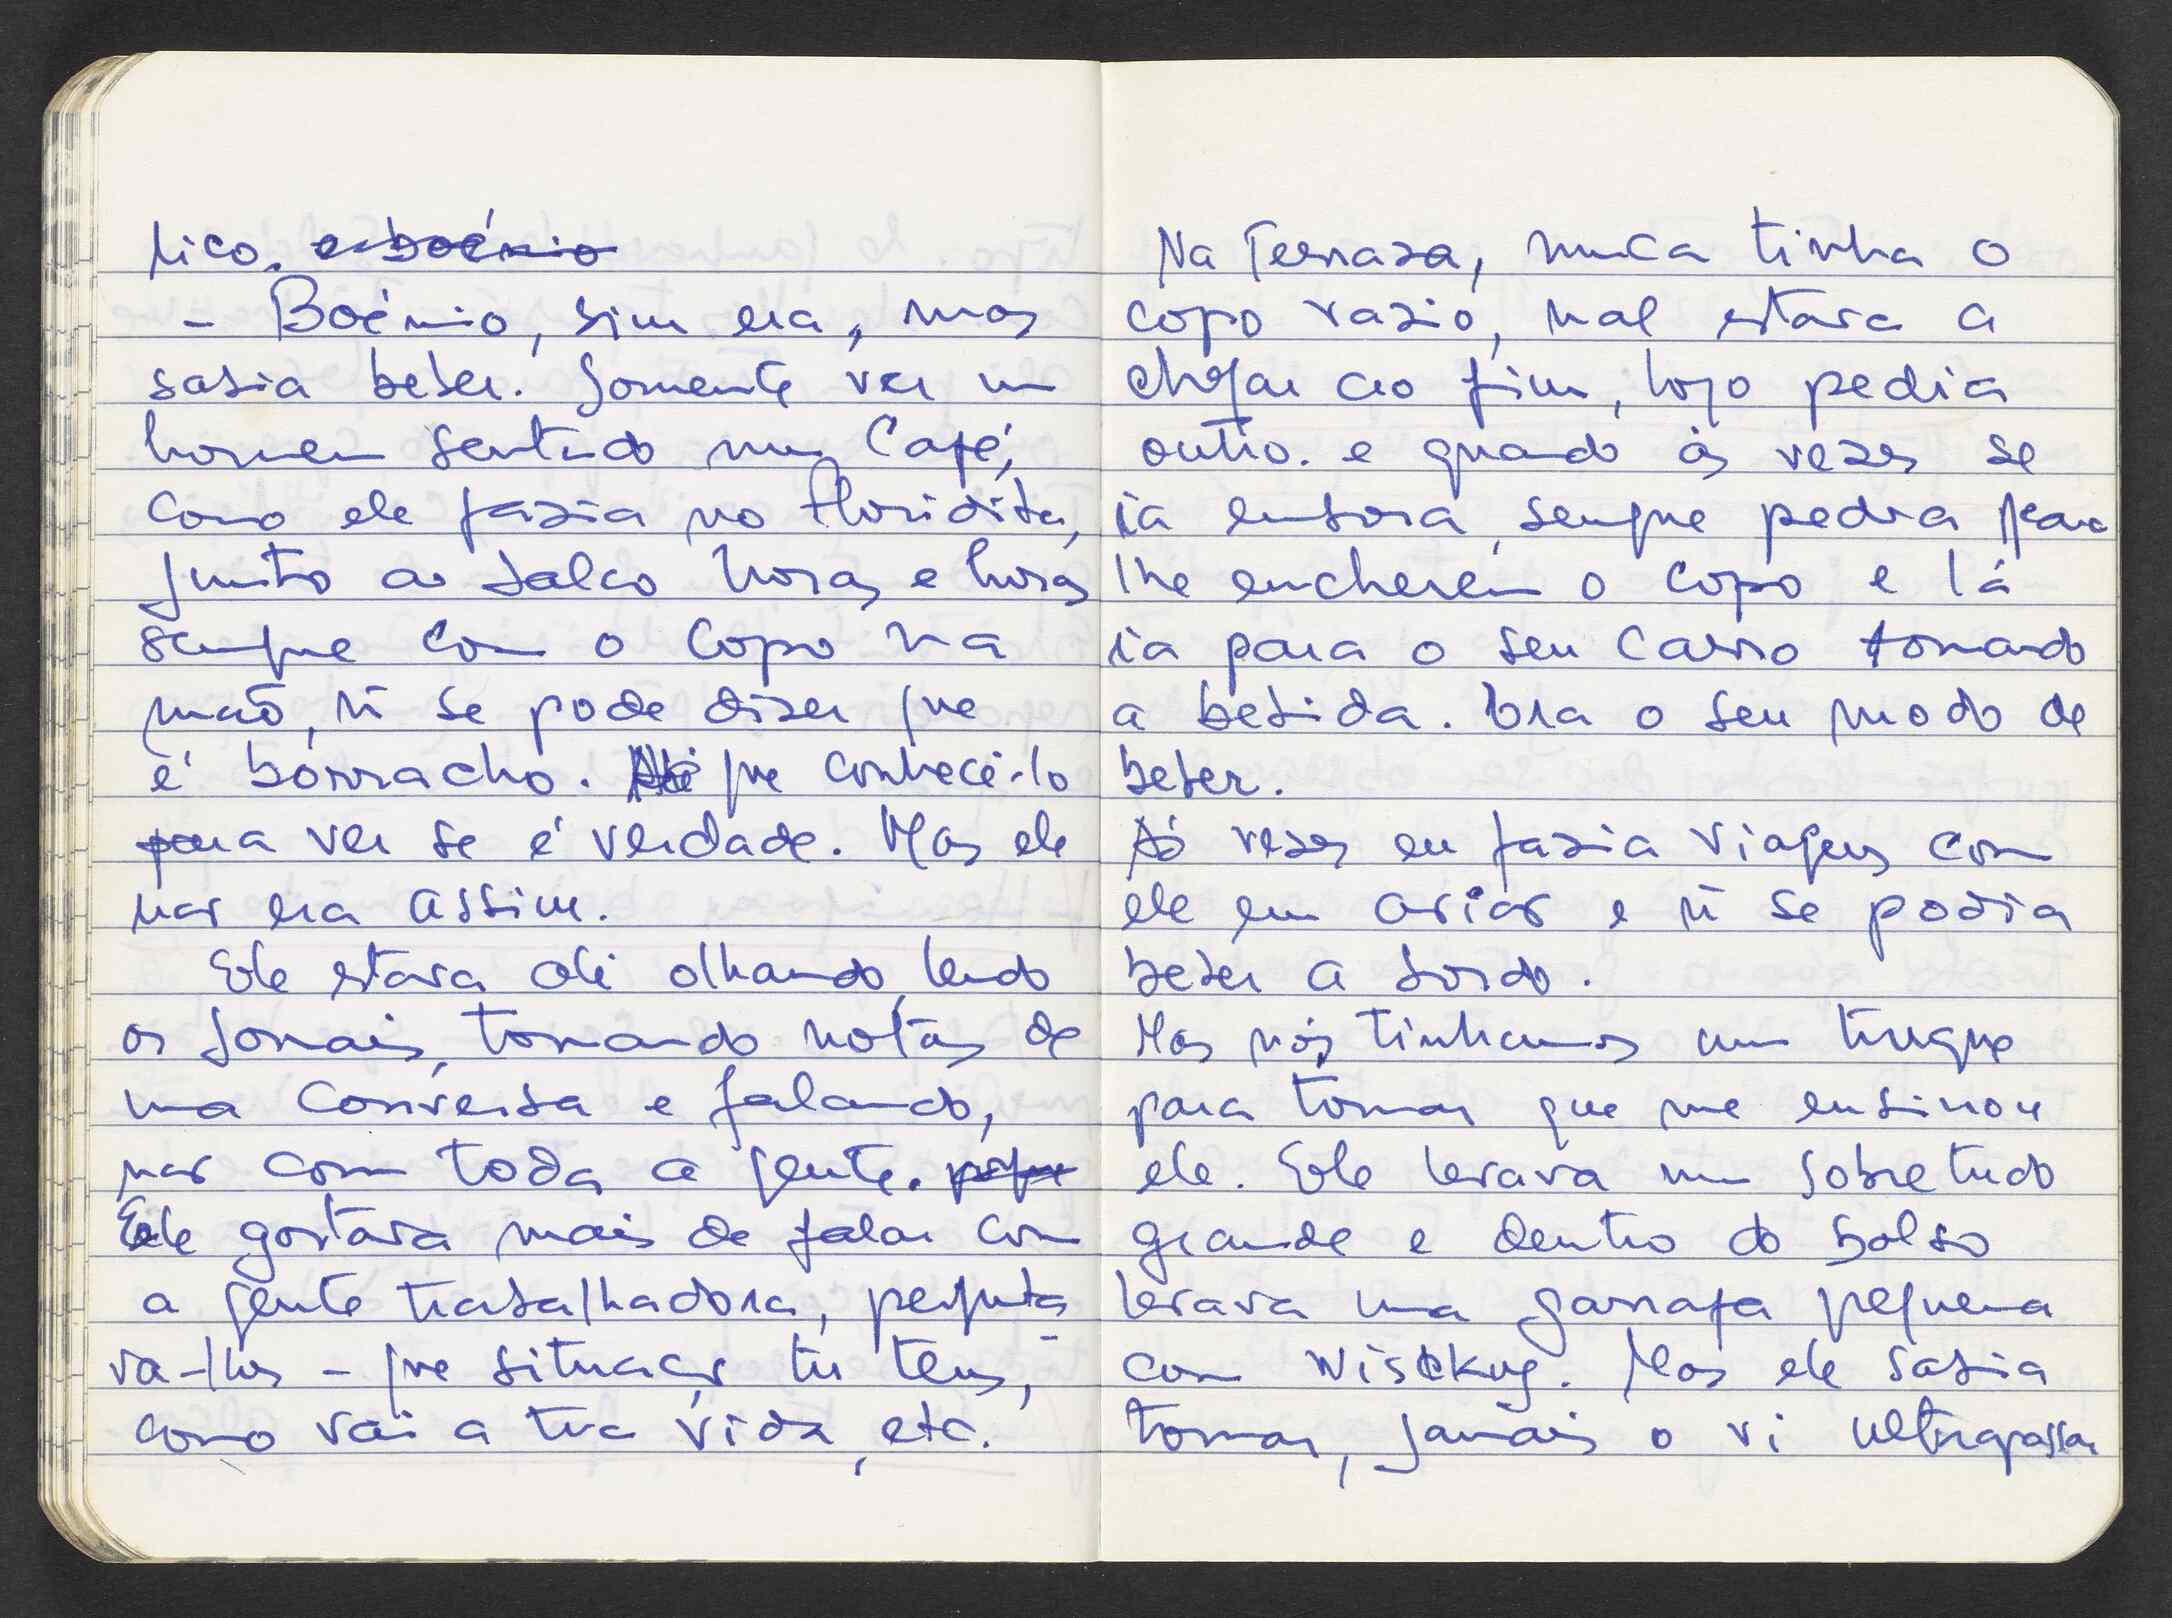 lico. e boémio
- Boémio, sim era, mas
sabia beber. Somente ver um
homem sentado num Café,
como ele fazia no Floridita,
junto ao balcão horas e horas
sempre com o copo na
mão, ñ se pode dizer que
é borracho. Há que conhecê-lo
para ver se é verdade. Mas ele
não era assim.
Ele estava ali olhando, lendo
os jornais, tomando notas de
uma conversa e falando,
não com toda a gente. porque
Ele gostava mais de falar com
a gente trabalhadora, pergunta
va-lhes - que situação tu tens,
como vai a tua vida, etc.
Na Terraza, nunca tinha o
copo vazio, mal estava a
chegar ao fim, logo pedia
outro. e quando às vezes se
ia embora, sempre pedia para
lhe encherem o copo e lá
ia para o seu carro tomando
a bebida. Era o seu modo de
beber.
Às vezes eu fazia viagens com
ele em avião e ñ se podia
beber a bordo.
Mas nós tinhamos um truque
para tomar que me ensinou
ele. Ele levava um sobretudo
grande e dentro do bolso
levava uma garrafa pequena
com Wisckuy. Mas ele sabia
tomar, jamais o vi ultrapassar